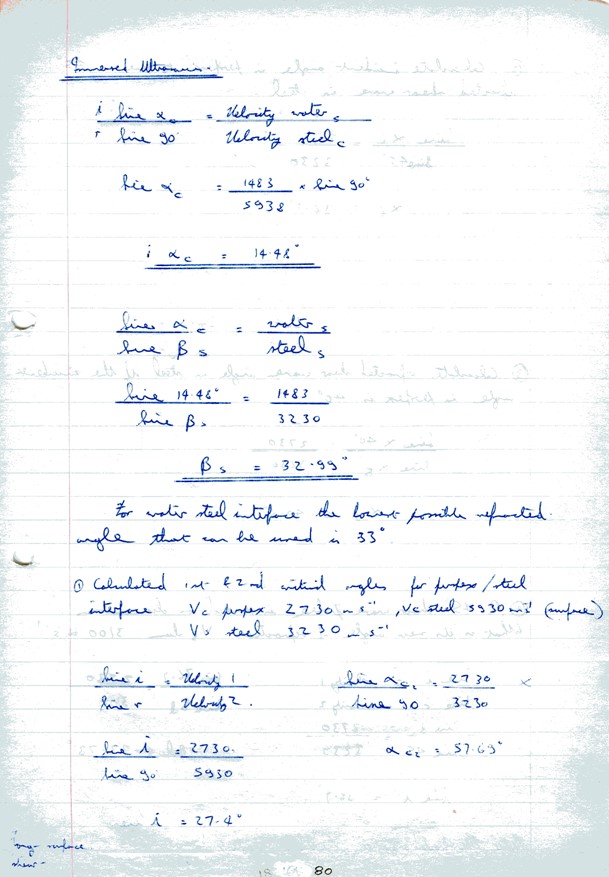 Immersed Ultrasonics.
i Sine αc = Velocity water s
r Sine 90 Velocity steel c
Sin αc = 1483 × Sine 90°
5938
i αc = 14.48°
Sine α c = water s
Sine β s steel s
Sine 14.48° = 1483
Sine βs 3230
βs = 32.99°
For water steel interface the lowest possible refracted
angle that can be used is 33°
① Calculated 1st & 2nd critical angles for perspex/steel
interface Vc perspex 2730 m s⁻¹, Vc steel 5930 ms⁻¹ (surface)
Vs steel 3230 m s⁻¹
Sine i = Velocity 1
Sine r Velocity 2.
Sine αc₂ = 2730 ×
Sine 90 3230
Sine i = 2730.
Sine 90 5930
α c2 = 57.69°
i = 27.4°
surface
shear -
80